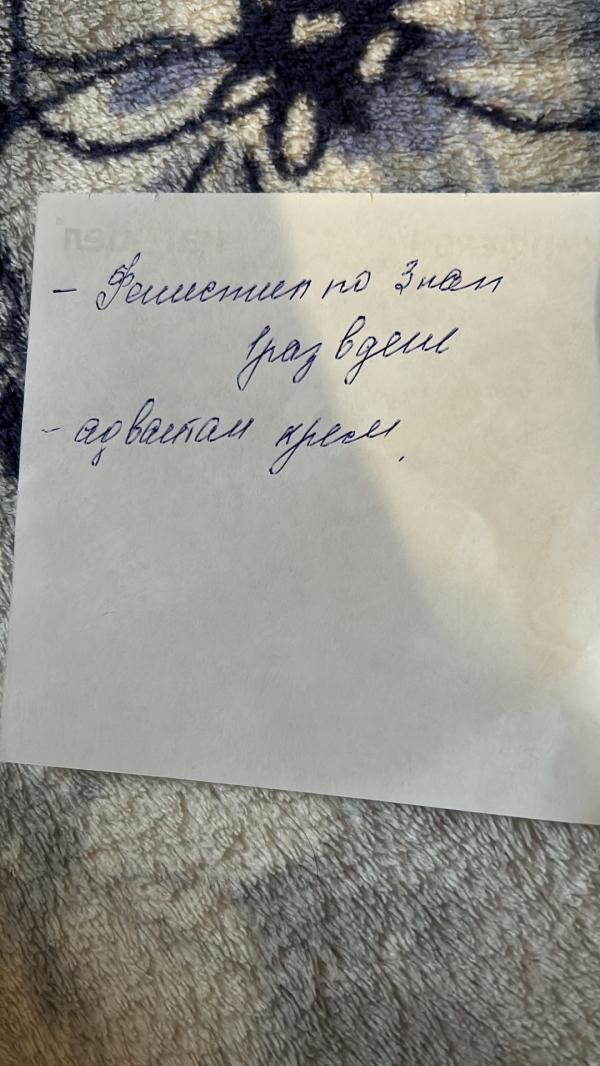 - Фенистил по 3 кап
1 раз в день
- адвантан крем